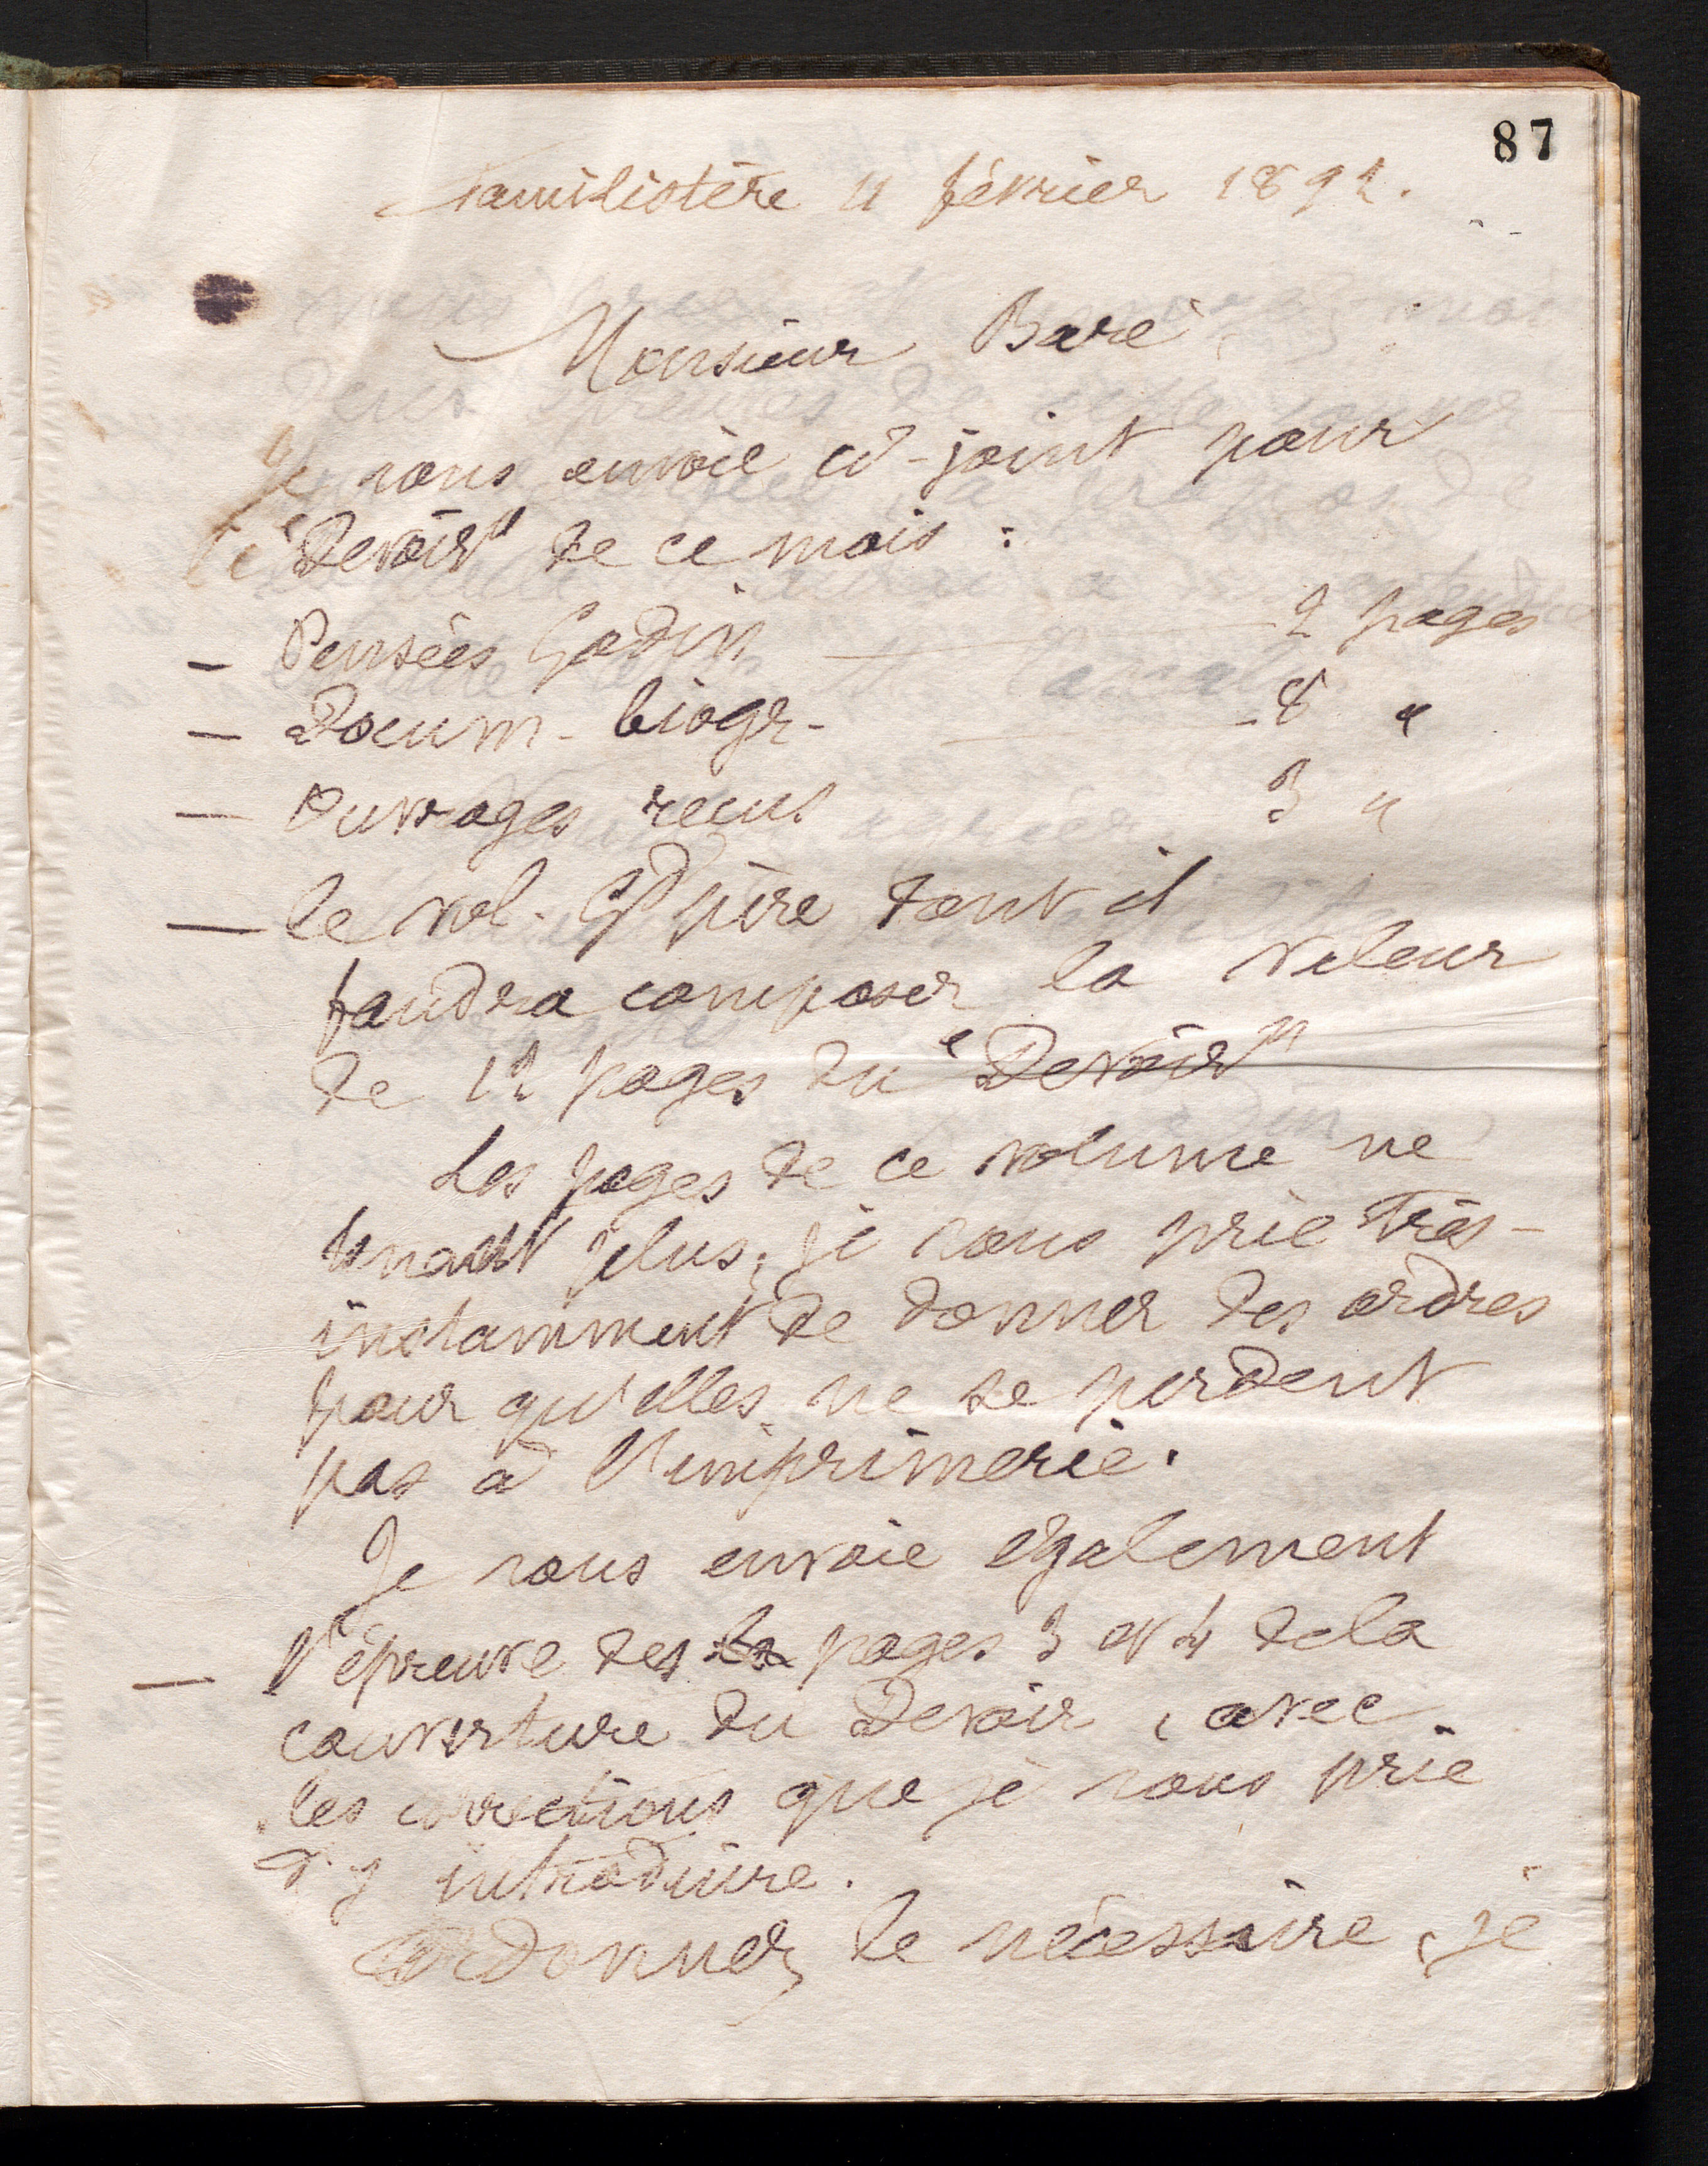 87
Familistère 11 février 1892.
Monsieur Baré
Je vous envoie ci-joint pour
le "Devoir" de ce mois :
- Pensées Godin 2 pages
- Docum. biogr. 8 "
- Ouvrages reçus 3 "
- le vol. Gd père dont il
faudra composer la valeur
de 12 pages du "Devoir"
Les pages de ce volume ne
tenant plus, je vous prie très-
instamment de donner des ordres
pour qu'elles ne se perdent
pas à l'imprimerie.
Je vous envoie également
- l'épreuve des pages 3 et 4 de la
couverture du Devoir, avec
les corrections que je vous prie
d'y introduire.
Ordonnez le nécessaire, je